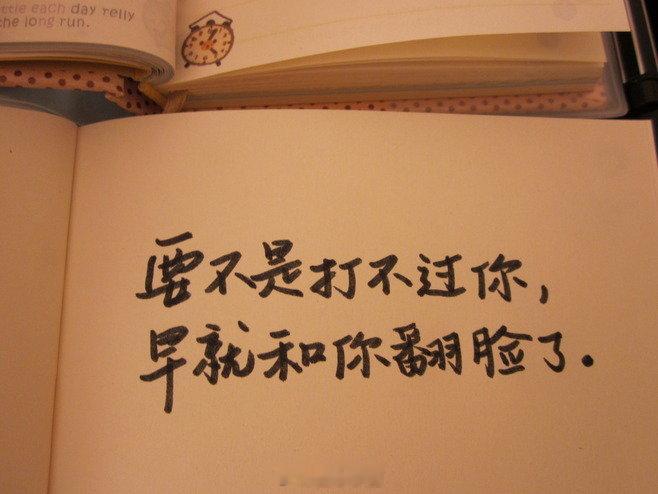 ttle each day relly
the long run.
要不是打不过你，
早就和你翻脸了.